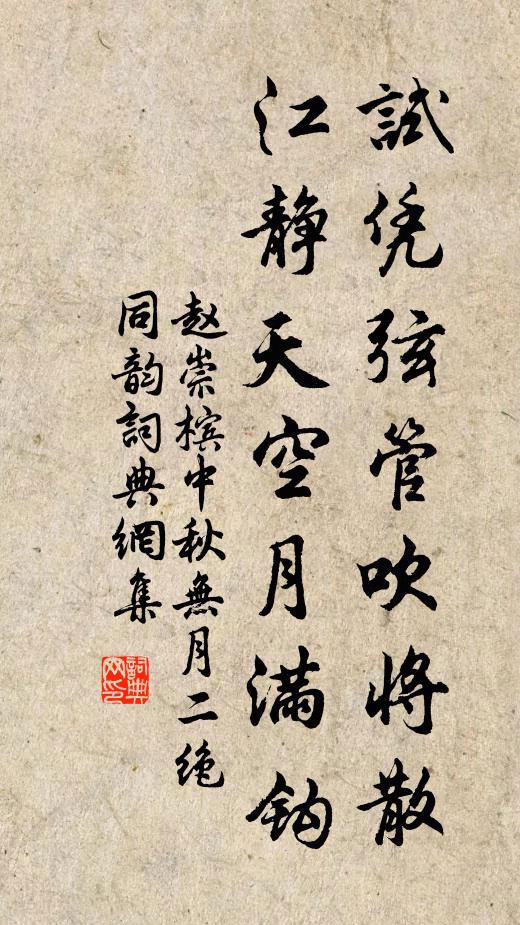 試凭弦管吹將散
江静天空月满鈎
赵崇槟中秋無月二绝
同韵詞典網集
詞典網印